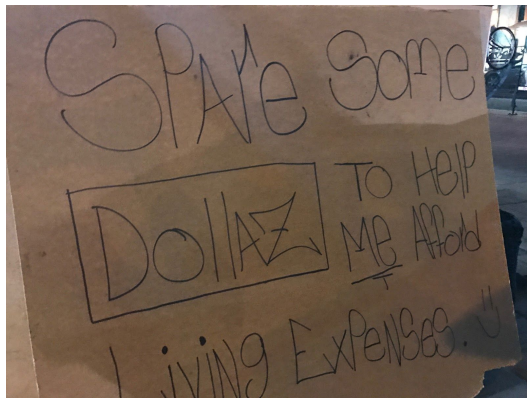 SPAre Some
DollAZ To HElP
ME AffOrd
LiViNg ExPeNSeS. :)